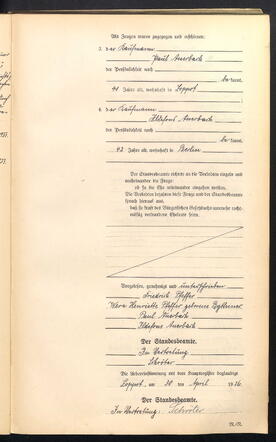 Als Zeugen waren zugezogen und erschienen:
3. der Kaufmann
Paul Auerbach
der Persönlichkeit nach
be kannt,
41 Jahre alt, wohnhaft in Zoppot
4. der Kaufmann
Ildefons Auerbach
der Persönlichkeit nach
be kannt,
42 Jahre alt, wohnhaft in Berlin
Der Standesbeamte richtete an die Verlobten einzeln und
nacheinander die Frage:
ob sie die Ehe miteinander eingehen wollen.
Die Verlobten bejahten diese Frage und der Standesbeamte
sprach hierauf aus,
daß sie kraft des Bürgerlichen Gesetzbuchs nunmehr recht-
mäßig verbundene Eheleute seien.
Vorgelesen, genehmigt und unterschrieben
Friedrich Pfeffer
Wera Henriette Pfeffer geborene
Paul Auerbach
Ildefons Auerbach
Der Standesbeamte.
In Vertretung
Schröter
Die Uebereinstimmung mit dem Hauptregister beglaubigt
Zoppot, am 20 ten April 1936
Der Standesbeamte.
In Vertretung: Schröter